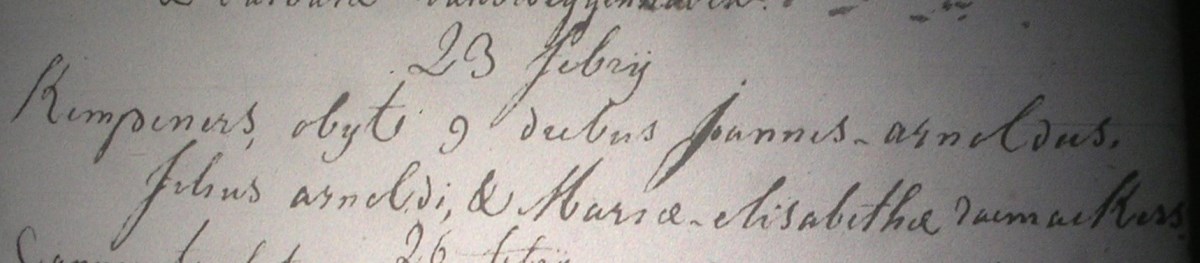 23 febrij
Kempeners, obyt 9 diebus Joannes-arnoldus.
filius arnoldi, & Mariæ-elisabethæ raemaekers
26 febrij